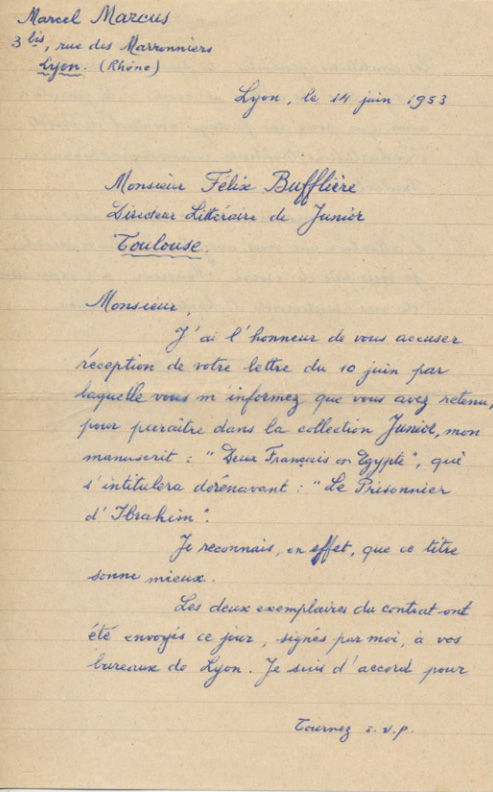 Marcel Marcus
3 bis, rue des Marronniers
Lyon. (Rhône)
Lyon, le 14 juin 1953
Monsieur Félix Bufflière
Directeur Littéraire de Junior
Toulouse.
Monsieur,
J'ai l'honneur de vous accuser
réception de votre lettre du 10 juin par
laquelle vous m'informez que vous avez retenu,
pour paraître dans la collection Junior, mon
manuscrit : "Deux Français en Egypte", qui
s'intitulera dorénavant : "Le Prisonnier
d'Ibrahim".
Je reconnais, en effet, que ce titre
sonne mieux.
Les deux exemplaires du contrat ont
été envoyés ce jour, signés par moi, à vos
bureaux de Lyon. Je suis d'accord pour
Tournez s.v.p.